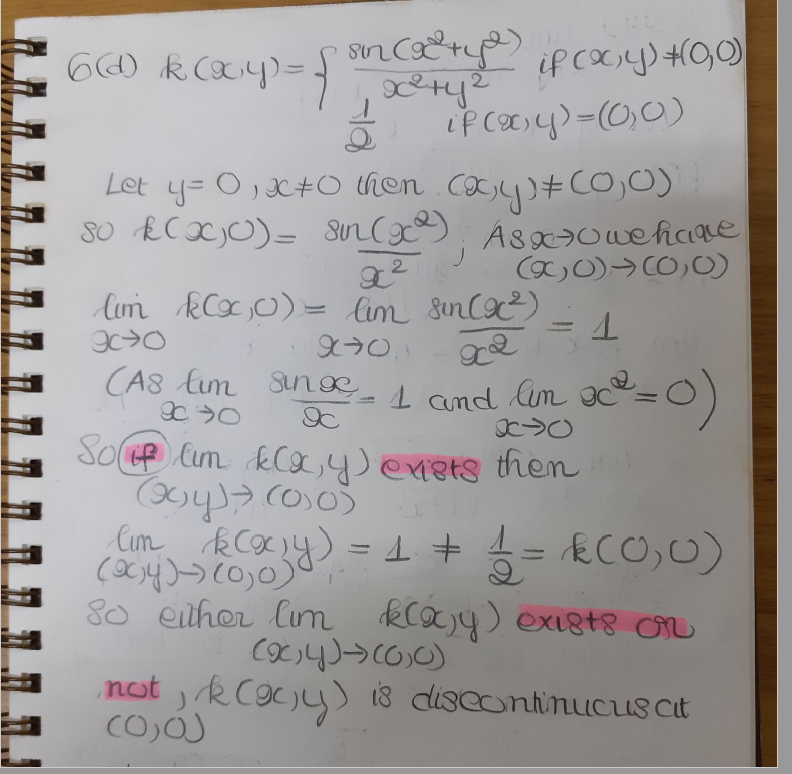 6(d) k(x,y) = { sin(x²+y²)/(x²+y²) if (x,y)≠(0,0)
1/2 if (x,y)=(0,0)
Let y=0, x≠0 then (x,y)≠(0,0)
so k(x,0) = sin(x²)/x² ; As x→0 we have
(x,0)→(0,0)
lim x→0 k(x,0) = lim x→0 sin(x²)/x² = 1
(As lim x→0 sin x/x = 1 and lim x→0 x² = 0)
So if lim k(x,y) exists then
(x,y)→(0,0)
lim (x,y)→(0,0) k(x,y) = 1 ≠ 1/2 = k(0,0)
so either lim k(x,y) exists or
(x,y)→(0,0)
not, k(x,y) is discontinucus at
(0,0)